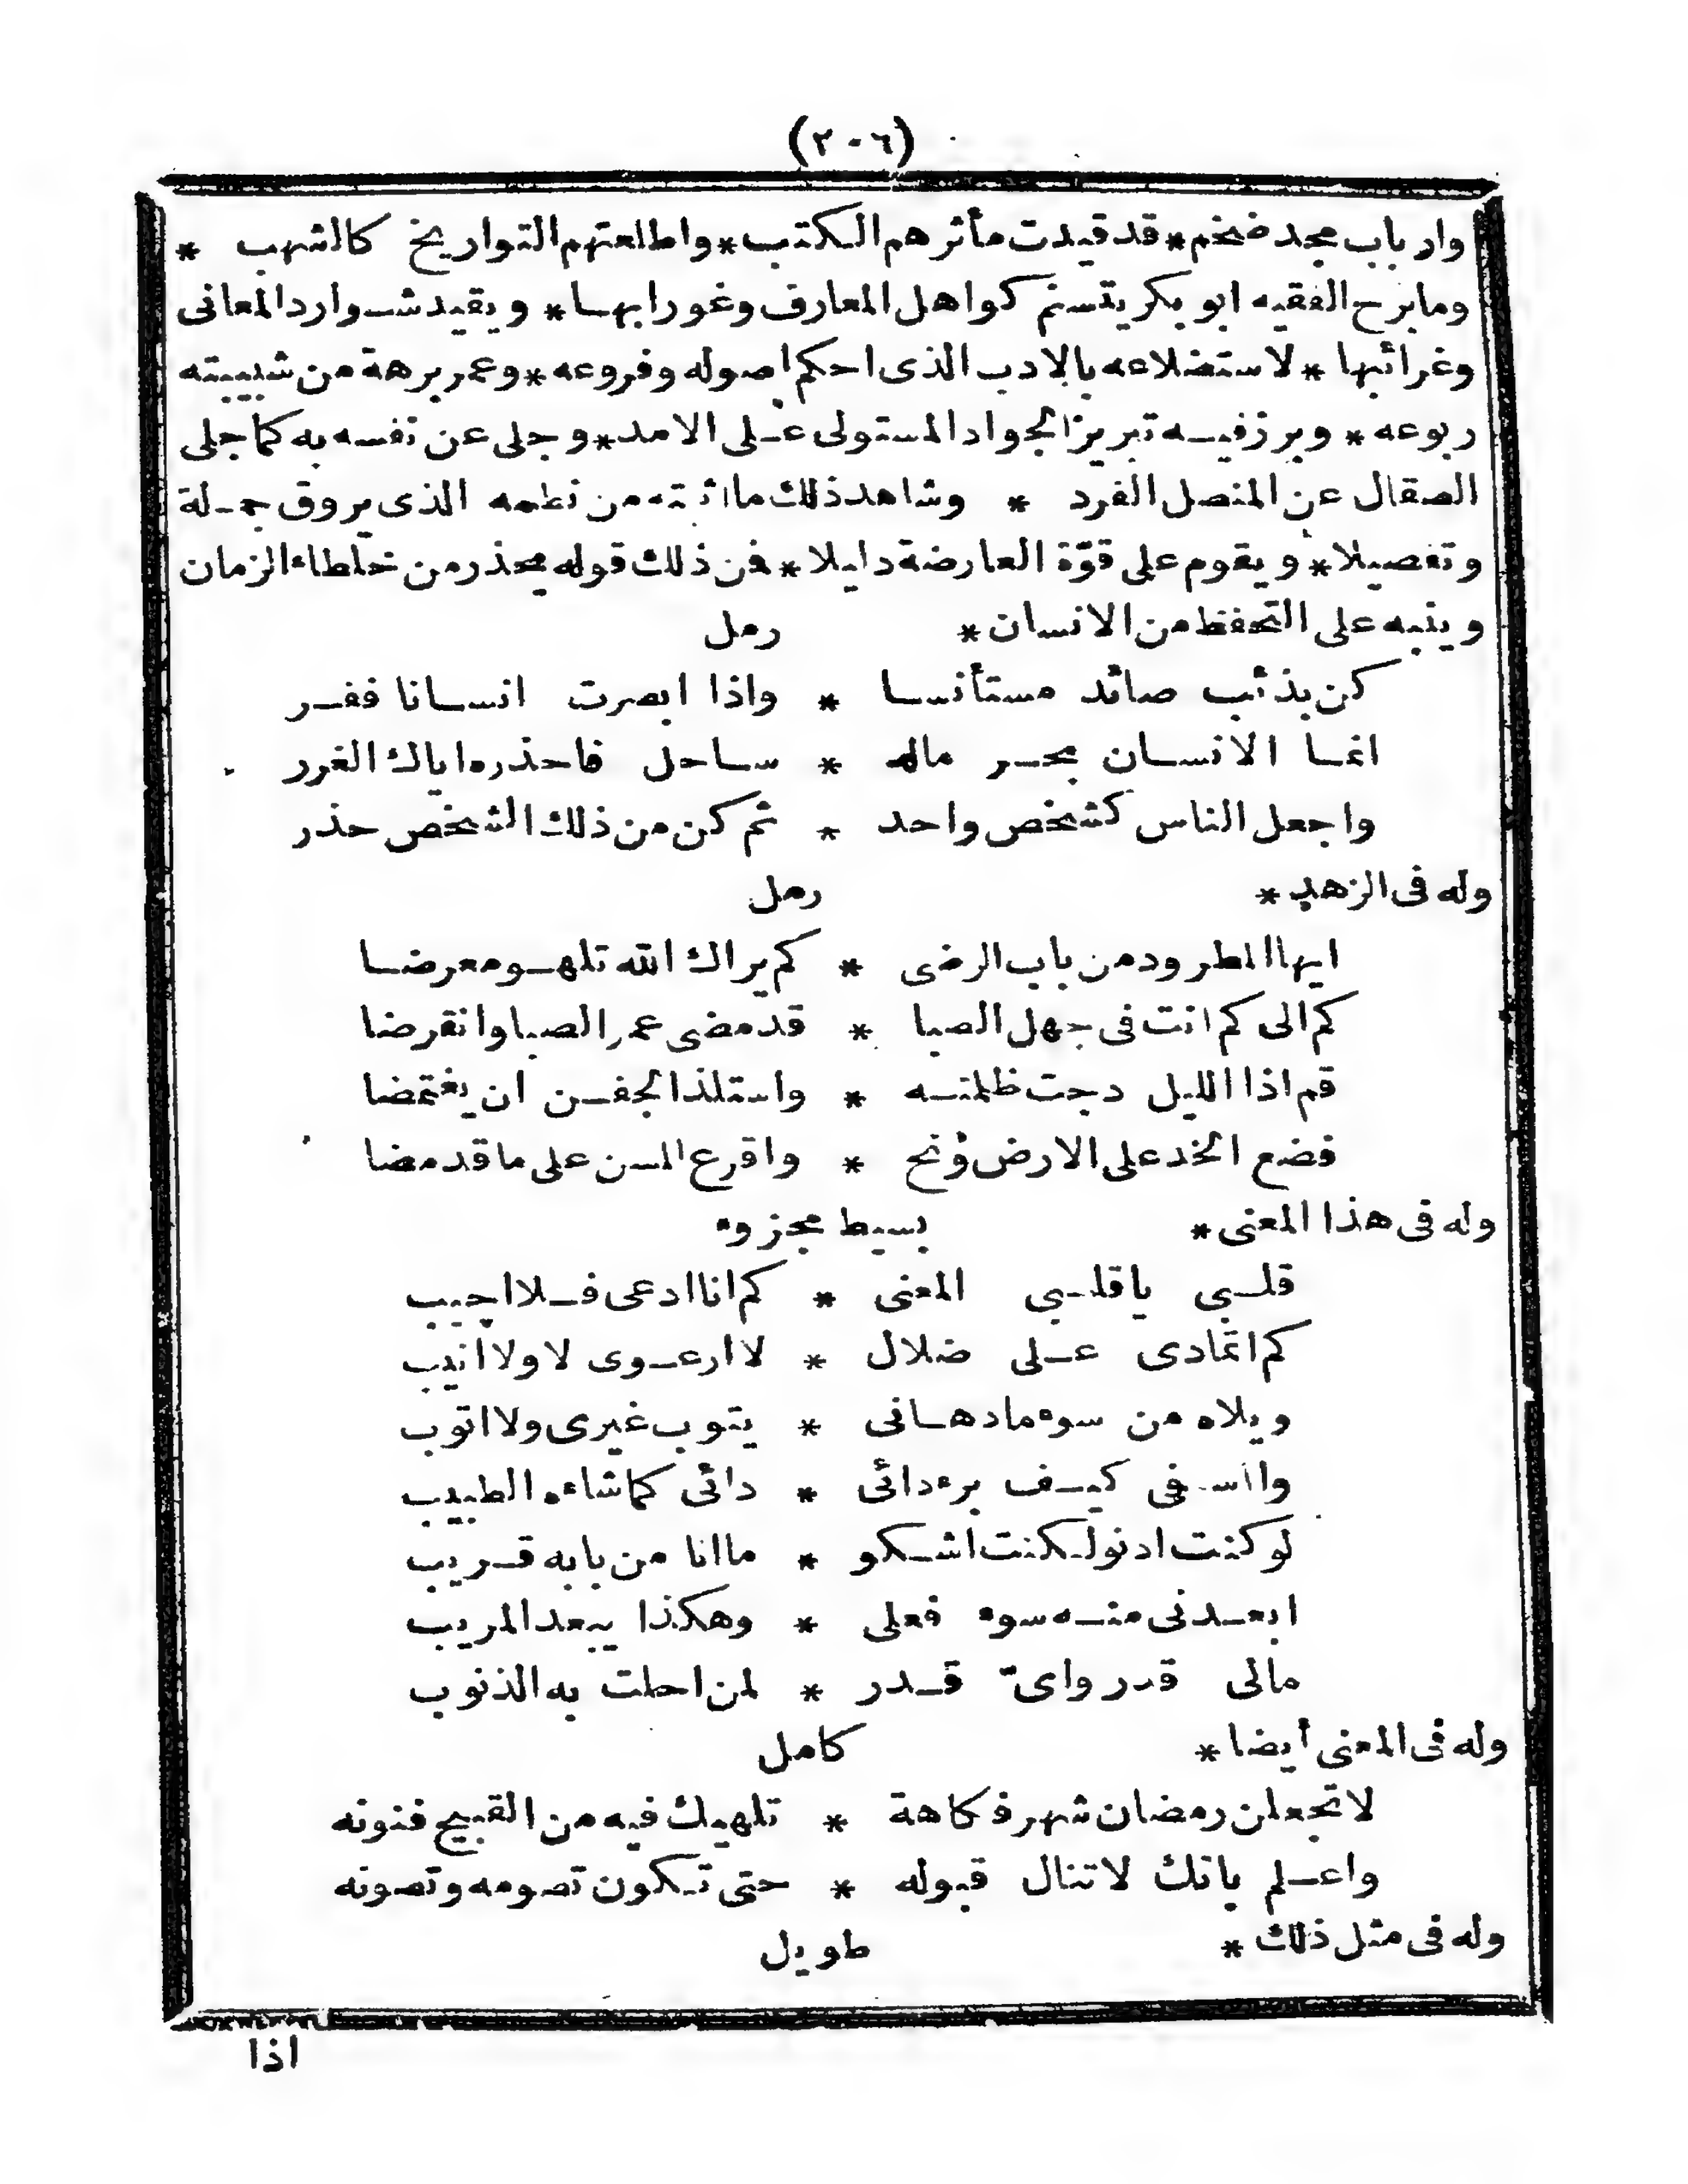 (٢٠٦)
وارباب مجد ضخم * قد قيدت مأثرهم الكتب * واطلعتهم التواريخ كالشهب *
ومابرح الفقيه ابو بكر يتسنم كواهل المعارف وغورابها * ويقيد شوارد المعانى
وغرائبها * لاستضلاعه بالادب الذى احكم اصوله وفروعه * وعمر برهة من شبيبته
ربوعه * وبرز فيه تبريز الجواد المستولى على الامد * وجلى عن نفسه به كما جلى
الصقال عن المنصل الفرد * وشاهد ذلك ما اثبته من نظمه الذى يروق جملة
وتفصيلا * ويقوم على قوّة العارضة دليلا * فمن ذلك قوله يحذر من خلطاء الزمان
وينبه على التحفظ من الانسان * رمل
كن بذئب صائد مستأنسا * واذا ابصرت انسانا ففر
انما الانسان بحر ماله * ساحل فاحذره اياك الغرر
واجعل الناس كشخص واحد * ثم كن من ذلك الشخص حذر
وله فى الزهد * رمل
ايها المطرود من باب الرضى * كم يراك الله تلهو معرضا
كم الى كم انت فى جهل الصبا * قد مضى عمر الصبا وانقرضا
قم اذا الليل دجت ظلمته * واستلذ الجفن ان يغتمضا
فضع الخد على الارض ونح * واقرع السن على ما قد مضا
وله فى هذا المعنى * بسيط مجزوء
قلبى يا قلبى المعنى * كم انا ادعى فلا اجيب
كم اتمادى على ضلال * لا ارعوى لا ولا انيب
ويلاه من سوء ما دهانى * يتوب غيرى ولا اتوب
وا اسفى كيف برء دائى * دائى كما شاءه الطبيب
لو كنت ادنو لكنت اشكو * ما انا من بابه قريب
ابعدنى منه سوء فعلى * وهكذا يبعد المريب
مالى قدر واىّ قدر * لمن احلت به الذنوب
وله فى المعنى أيضا * كامل
لا تجعلن رمضان شهر فكاهة * تلهيك فيه من القبيح فنونه
واعلم بانك لا تنال قبوله * حتى تكون تصومه وتصونه
وله فى مثل ذلك * طويل
اذا